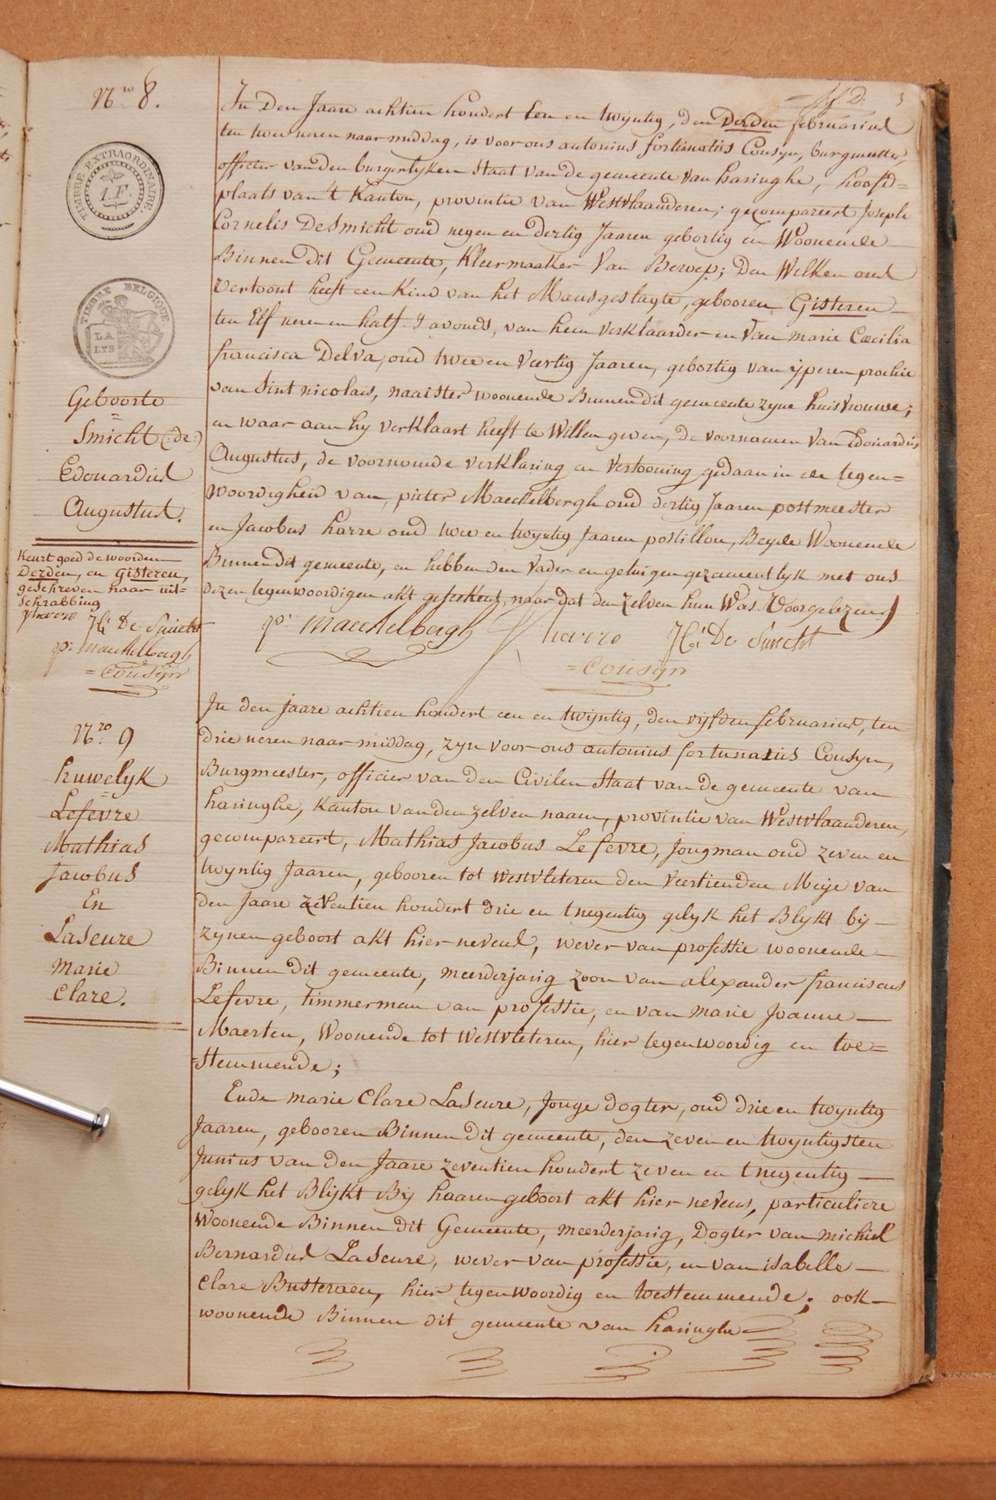 Nro 8.
TIMBRE EXTRAORDINAIRE.
1.F.
TIMBRE BELGIQUE
LA
LYS
Geboorte
=
Smicht (de)
Edouardus
Augustus.
Keurt goed de woorden
Derden, en Gisteren,
geschreven naar uit=
schrabbing
J harre
J.C. De Smicht
p: Maeckelbergh
= Cousyn
In Den Jaare achtien hondert een en twyntig, den Derden februarius
ten twee ueren naarmiddag, is voor ons antonius fortunatus Cousyn, burgmeester,
officier van den burgerlyken Staat van de gemeente van haringhe, hoofd=
plaats van 't Kanton, provintie van Westvlaanderen; gecompareert Joseph
Cornelis DeSmicht oud negen en dertig Jaaren gebortig en Woonende
Binnen dit Gemeente, Kleermaaker Van Beroep; Den Welken ons
Vertoont heeft een Kind van het Mansgeslagte, gebooren Gisteren
ten Elf ueren en half S'avonds, van hem Verklaarder en Van marie Cæcilia
francisca Delva, oud twee en Veertig Jaaren, gebortig van ijperen prochie
van Sint nicolais, naaister woonende Binnen dit gemeente zyne huisvrouwe;
en waar aan hy verklaart heeft te Willen geven, de voornamen Van Edouardus
Augustus, de voornoemde verklaring en Vertooning gedaan in de tegen=
woordigheid van, pieter Maeckelbergh oud dertig Jaaren postmeester
en Jacobus harre oud twee en twyntig Jaaren postillon, Beyde Woonende
Binnen dit gemeente, en hebben den Vader en getuigen gezamentlyk met ons
dezen tegenwoordigen akt geteekent, naar dat den zelven hun Was Voorgelezen
p: Maeckelbergh J harre J.C. De Smicht
= Cousyn
Nro. 9
huwelyk
=
Lefevre
Mathias
Jacobus
En
LaSeure
Marie
Clare.
In den Jaare achtien hondert een en twyntig, den vyfden februarius, ten
drie ueren naar middag, zyn voor ons antonius fortunatus Cousyn,
Burgmeester, officier van den Civilen Staat van de gemeente van
haringhe, Kanton van den zelven naam, provintie van Westvlaanderen,
gecompareert, Mathias Jacobus Lefevre, Jongman oud zeven en
twyntig Jaaren, gebooren tot westvleteren den Veertienden Meije van
den Jaare zeventien hondert drie en tnegentig gelyk het Blykt bij
zynen geboort akt hier nevens, wever van professie woonende
Binnen dit gemeente, meerderjarig zoon van alexander franciscus
Lefevre, timmerman van professie, en van marie Joanne
Maerten, Woonende tot westvleteren, hier tegenwoordig en toe=
=stemmende;
Ende marie Clare LaSeure, Jonge dogter, oud drie en twyntig
Jaaren, gebooren Binnen dit gemeente, den zeven en twyntigsten
Junius van den Jaare zeventien hondert zeven en tnegentig
gelyk het Blijkt Bij haaren geboort akt hier nevens, particuliere
Woonende Binnen dit Gemeente, meerderjarig, Dogter van michiel
Bernardus LaSeure, wever van professie, en van isabelle
Clare Busteraen, hier tegenwoordig en toestemmende; ook
woonende Binnen dit gemeente van haringhe